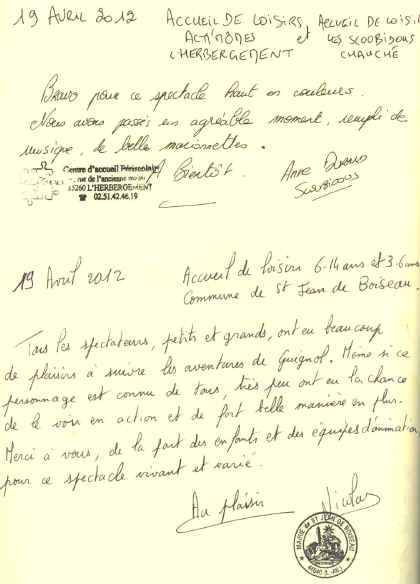 19 AVRIL 2012 ACCUEIL DE LOISIRS, ACCUEIL DE LOIS
et LES SCOOBIDOUS
L'HERBERGEMENT CHAUCHÉ
Bravo pour ce spectacle haut en couleurs.
Nous avons passés un agréable moment, rempli de
musique, de belle marionnettes.
A bientôt. Anne
SCOOBIDOUS
Centre d'accueil Périscolaire
rue de l'ancienne
85260 L'HERBERGEMENT
☎ 02.51.42.46.19
19 Avril 2012 Accueil de loisirs 6-14 ans et 3-6 ans
Commune de St Jean de Boiseau.
Tous les spectateurs, petits et grands, ont eu beaucoup
de plaisirs à suivre les aventures de Guignol. Même si ce
personnage est connu de tous, très peu ont eu la chance
de le voir en action et de fort belle manière en plus.
Merci à vous, de la part des enfants et des équipes d'animation
pour ce spectacle vivant et varié.
Au plaisir Nicolas
MAIRIE de ST JEAN DE BOISEAU